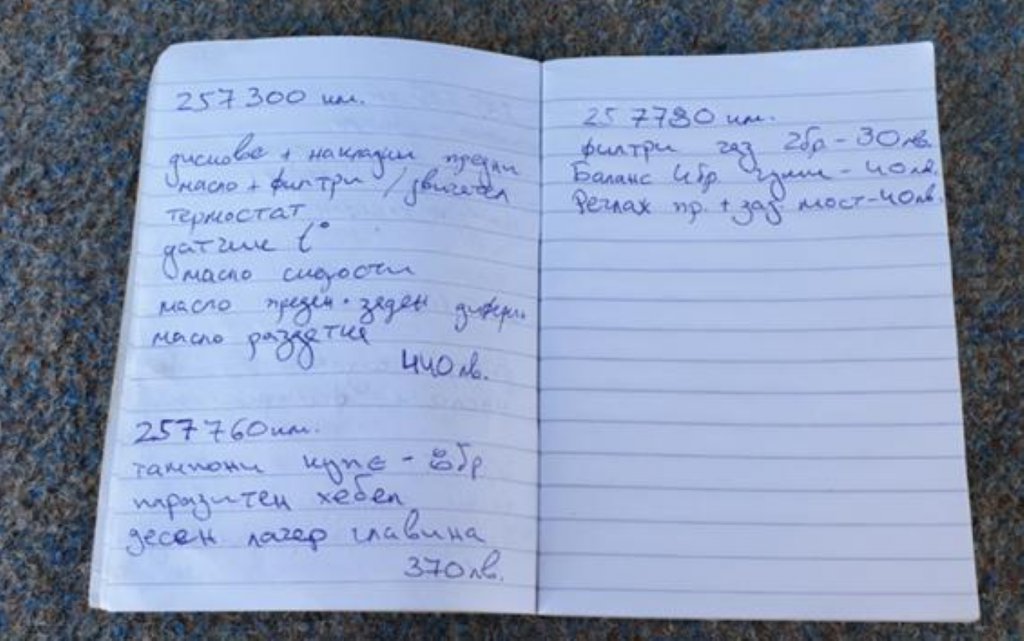 257300 км.
дискове + накладки предни
масло + филтри / двигател
термостат
датчик t°
масло скорости
масло преден + заден дифер.
масло раздатка
440 лв.
257760 км.
тампони купе - 8бр
паразитен хебел
десен лагер главина
370 лв.
257780 км.
филтри газ 2бр - 30 лв.
Баланс 4бр гуми - 40 лв.
Реглаж пр. + зад мост - 40 лв.